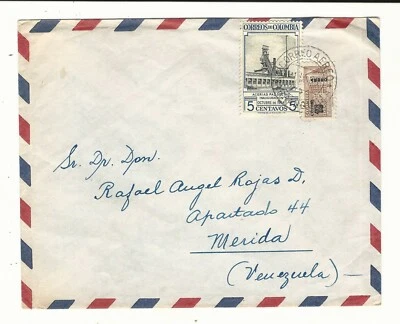 CORREOS DE COLOMBIA
5 CENTAVOS 5
CORREO AÉREO
Sr. Dr. Don.
Rafael Angel Rojas D.
Apartado 44
Merida
(Venezuela)